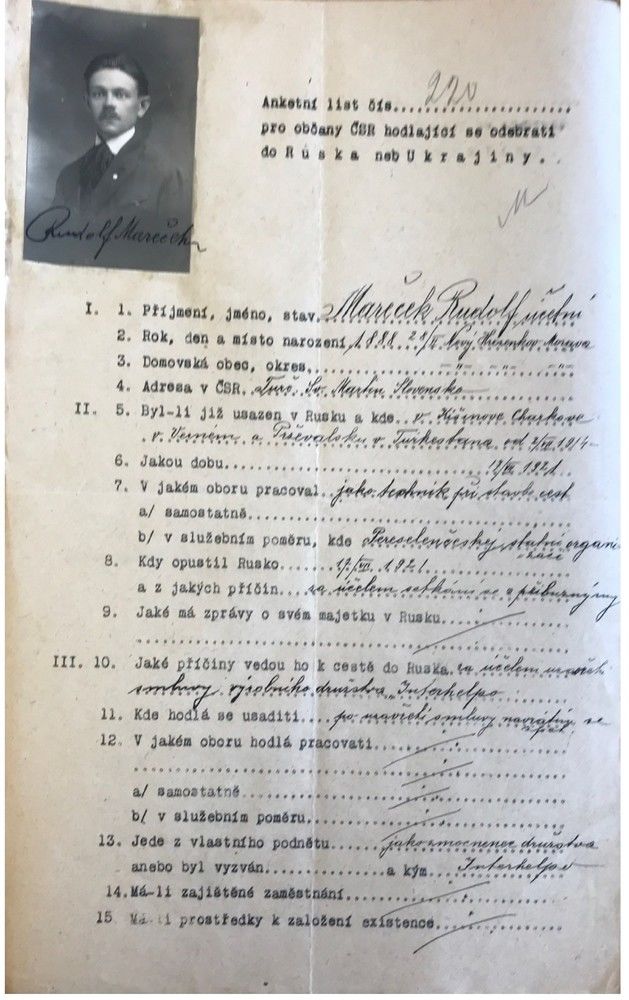 Anketní list čís. 220
pro občany ČSR hodlající se odebrati
do Ruska neb Ukrajiny.
Rudolf Mareček
I. 1. Příjmení, jméno, stav. Mareček Rudolf, účetní
2. Rok, den a místo narození 1888 Nový Morava
3. Domovská obec, okres. -"- -"- -"-
4. Adresa v ČSR. Turč. Sv. Martin Slovensko
II. 5. Byl-li již usazen v Rusku a kde v Charkove
v Verném a v Turkestanu od 1914-
6. Jakou dobu 1921
7. V jakém oboru pracoval jako technik při stavbě cest
a/ samostatně
b/ v služebním poměru, kde státní organi-
zace
8. Kdy opustil Rusko 17/VII. 1921
a z jakých příčin. za účelem setkání se s příbuznými
9. Jaké má zprávy o svém majetku v Rusku
III. 10. Jaké příčiny vedou ho k cestě do Ruska za účelem
smlouvy družstva "Interhelpo
11. Kde hodlá se usaditi po uzavření smlouvy se
zpět
12. V jakém oboru hodlá pracovati
a/ samostatně
b/ v služebním poměru
13. Jede z vlastního podnětu jako zmocněnec družstva
anebo byl vyzván a kým Interhelpo
14. Má-li zajištěné zaměstnání
15. Má-li prostředky k založení existence